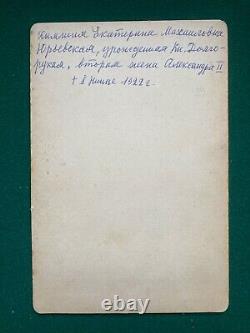 Княгиня Екатерина Михайловна
Юрьевская, урожденная Кн. Долго-
рукая, вторая жена Александра II
† 1922 г.